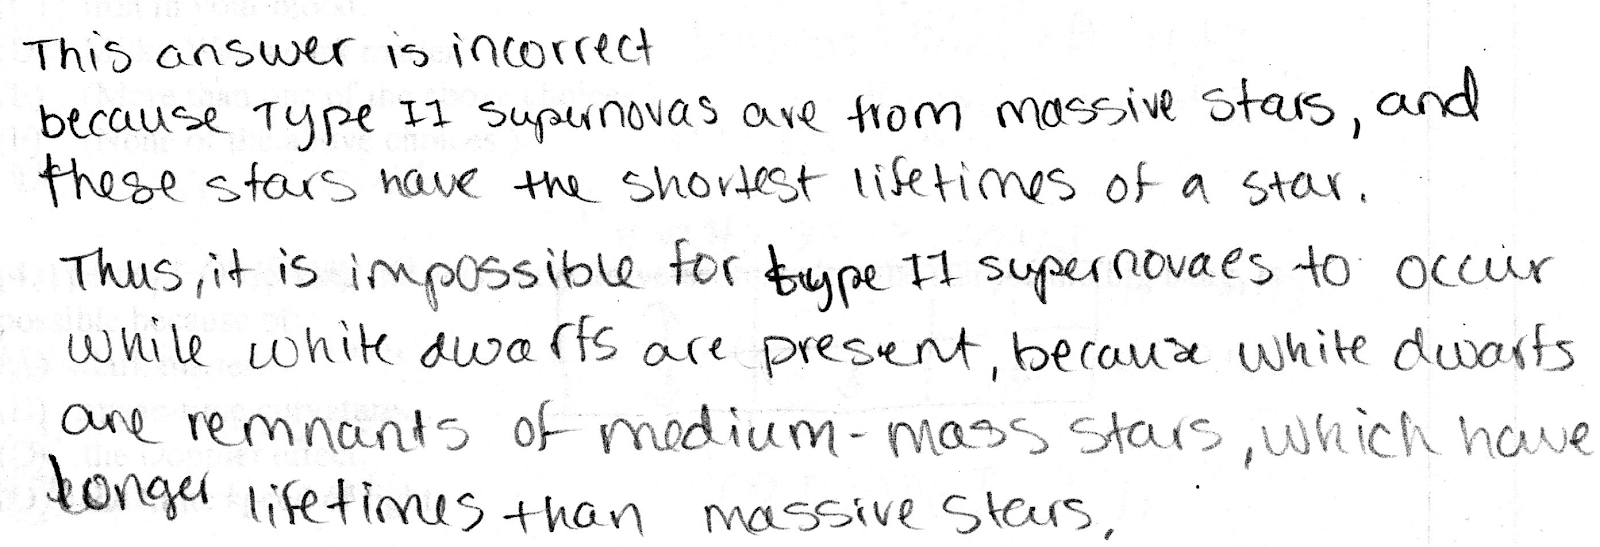 This answer is incorrect
because Type II supernovas are from massive stars, and
these stars have the shortest lifetimes of a star.
Thus, it is impossible for type II supernovaes to occur
while white dwarfs are present, because white dwarfs
are remnants of medium-mass stars, which have
longer lifetimes than massive stars.